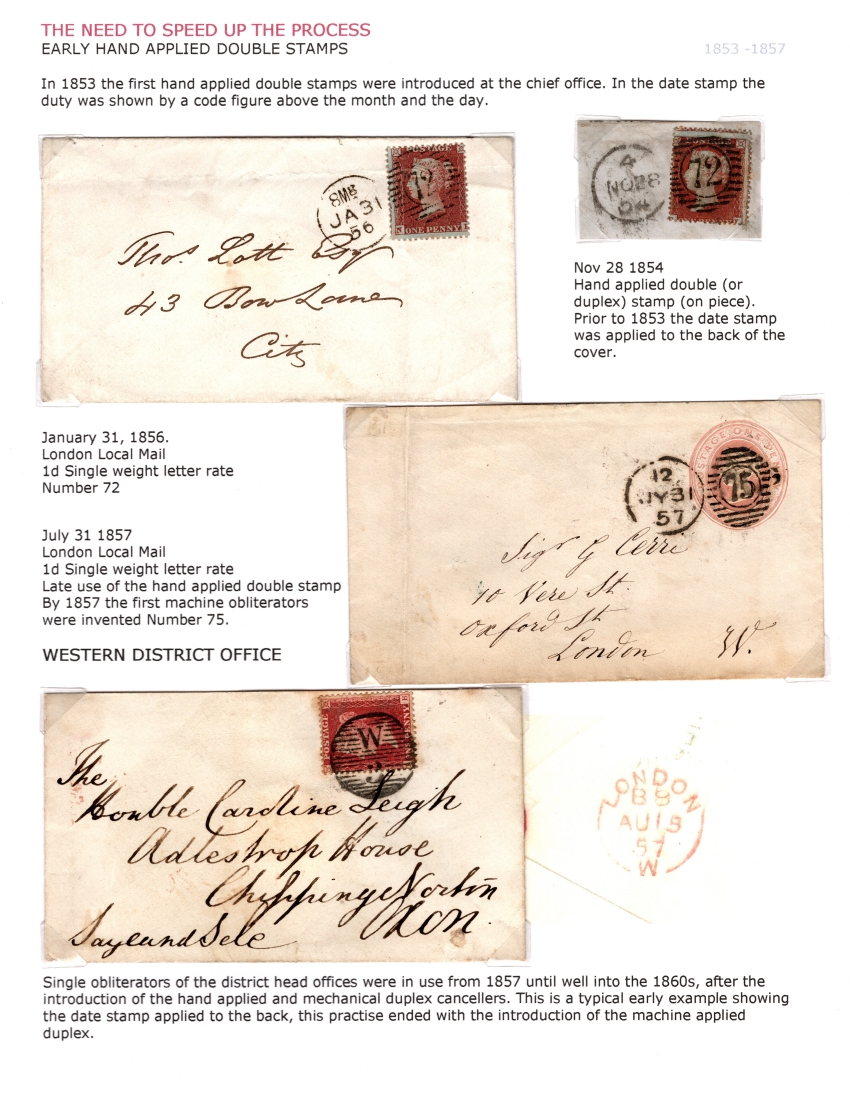 THE NEED TO SPEED UP THE PROCESS
EARLY HAND APPLIED DOUBLE STAMPS
1853 -1857
In 1853 the first hand applied double stamps were introduced at the chief office. In the date stamp the
duty was shown by a code figure above the month and the day.
POSTAGE
72
ONE PENNY
8MB
JA 31
56
Thos. Lott Esqr
43 Bow Lane
City
4
NO 28
54
72
Nov 28 1854
Hand applied double (or
duplex) stamp (on piece).
Prior to 1853 the date stamp
was applied to the back of the
cover.
January 31, 1856.
London Local Mail
1d Single weight letter rate
Number 72
July 31 1857
London Local Mail
1d Single weight letter rate
Late use of the hand applied double stamp
By 1857 the first machine obliterators
were invented Number 75.
12
JY 31
57
75
Sigr G Cerri
10 Vere St.
Oxford St
London W.
WESTERN DISTRICT OFFICE
POSTAGE
W
3
PENNY
The
Honble Caroline Leigh
Adlestrop House
Chipping Norton
Oxon.
Sayeandsele
LONDON
AU 13
57
W
Single obliterators of the district head offices were in use from 1857 until well into the 1860s, after the
introduction of the hand applied and mechanical duplex cancellers. This is a typical early example showing
the date stamp applied to the back, this practise ended with the introduction of the machine applied
duplex.